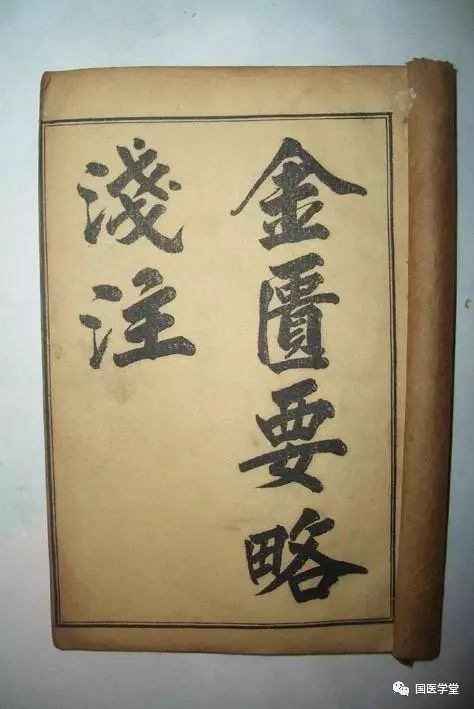 金匱要略
淺注
国医学堂